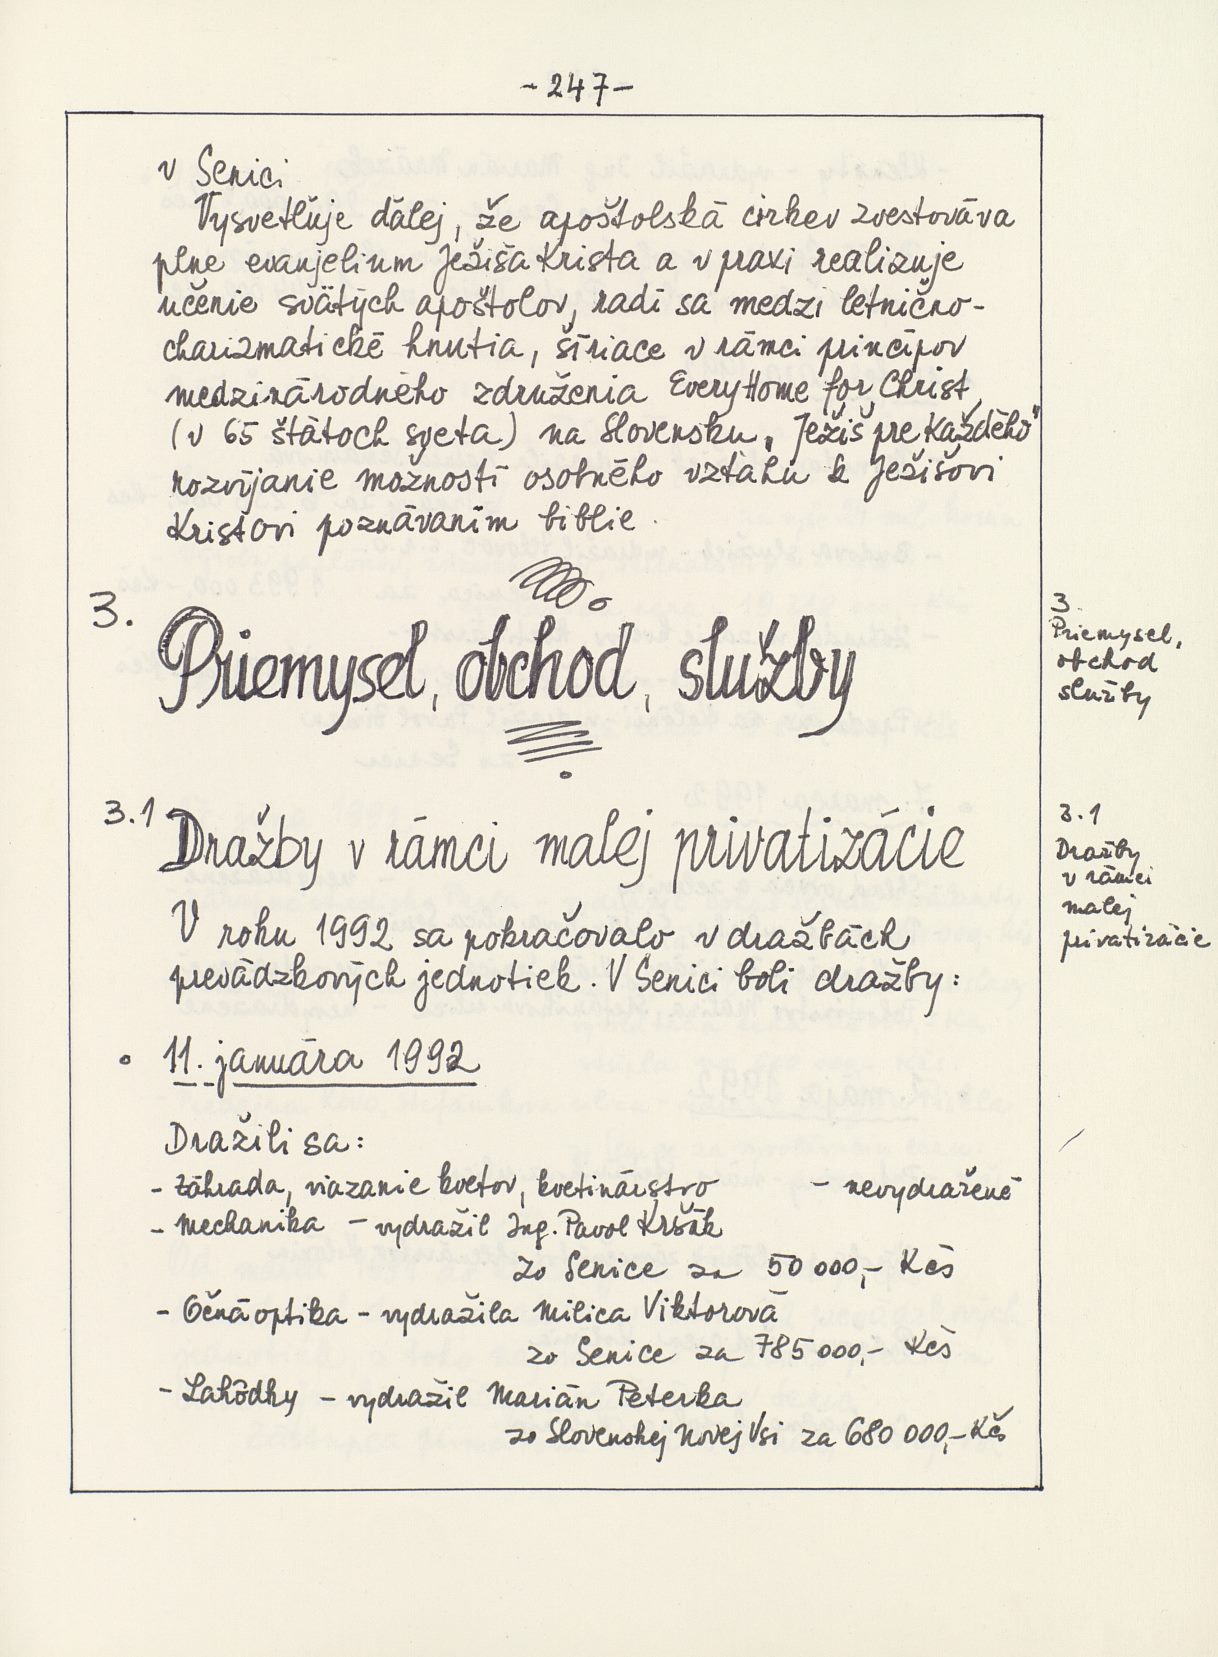 - 247 -
v Senici
Vysvetľuje ďalej, že apoštolská cirkev zvestováva
plne evanjelium Ježiša Krista a v praxi realizuje
učenie svätých apoštolov, radí sa medzi letnično-
charizmatické hnutia, šíriace v rámci princípov
medzinárodného združenia Every Home for Christ
(v 65 štátoch sveta) na Slovensku „Ježiš pre Každého"
rozvíjanie možností osobného vzťahu k Ježišovi
Kristovi poznávaním biblie.
3.
Priemysel, obchod, služby
3
Priemysel,
obchod
služby
3.1 Dražby v rámci malej privatizácie
3.1
Dražby
v rámci
malej
privatizácie
V roku 1992 sa pokračovalo v dražbách
prevádzkových jednotiek. V Senici boli dražby:
• 11. januára 1992
Dražili sa:
- Záhrada, viazanie kvetov, kvetinárstvo - nevydražené
- Mechanika - vydražil Ing. Pavol Kršák
zo Senice za 50 000,- Kčs
- Očná optika - vydražila Milica Viktorová
zo Senice za 785 000,- Kčs
- Lahôdky - vydražil Marián Peterka
zo Slovenskej Novej Vsi za 680 000,- Kčs